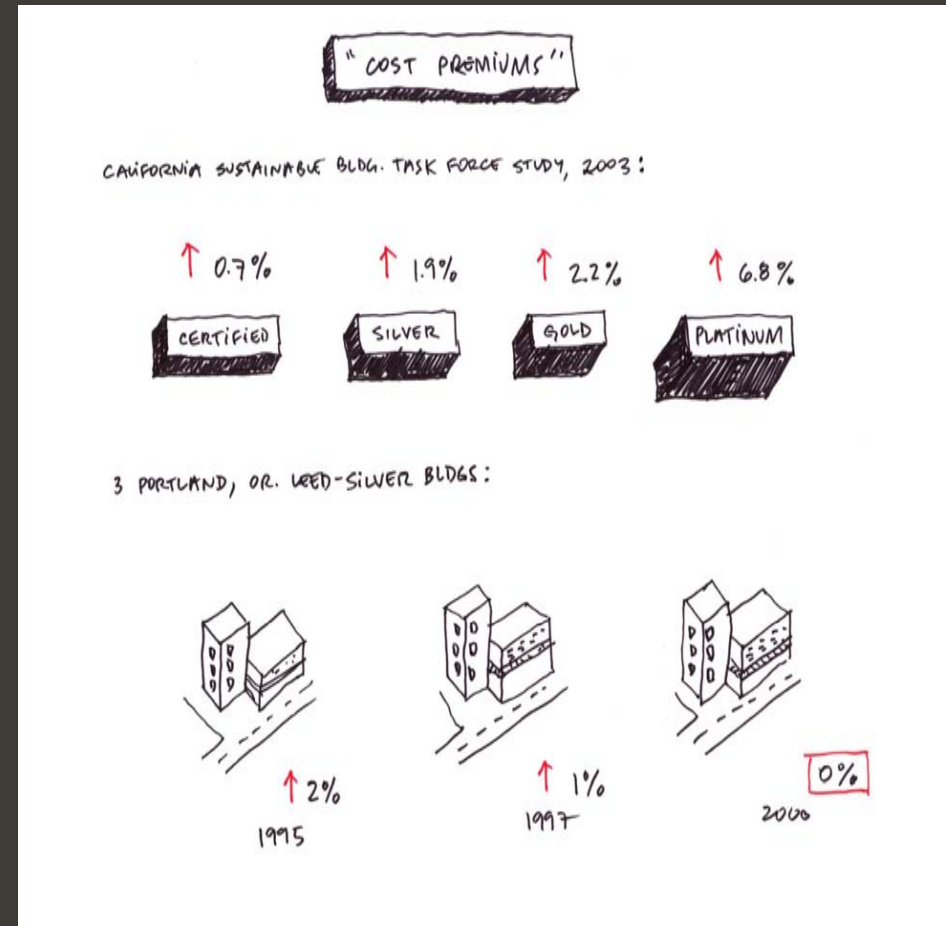 "COST PREMIUMS"
CALIFORNIA SUSTAINABLE BLDG. TASK FORCE STUDY, 2003:
↑ 0.7% ↑ 1.9% ↑ 2.2% ↑ 6.8%
CERTIFIED SILVER GOLD PLATINUM
3 PORTLAND, OR. LEED-SILVER BLDGS:
↑ 2% ↑ 1% 0%
1995 1997 2000